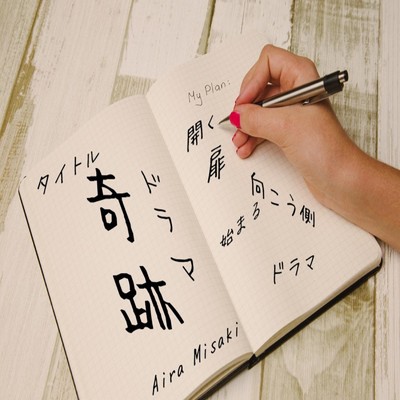 タイトル
奇跡
ドラマ
Aira Misaki
My Plan:
開く
扉
向こう側
始まる
ドラマ